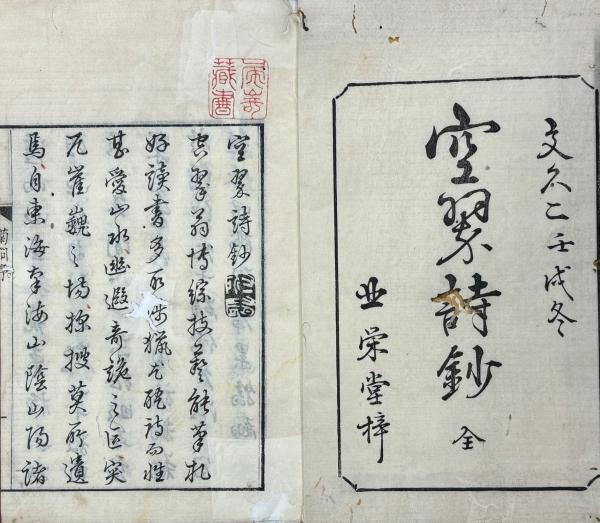 文久二壬戌冬
空翠詩鈔 全
栄堂梓
藏書
空翠詩鈔
空翠翁博綜技藝能筆札
好讀書多所渉猟尤詩而性
甚愛山水幽遐奇詭之区突
兀崔巍之場探捜莫所遺
焉自東海南海山陰山陽諸